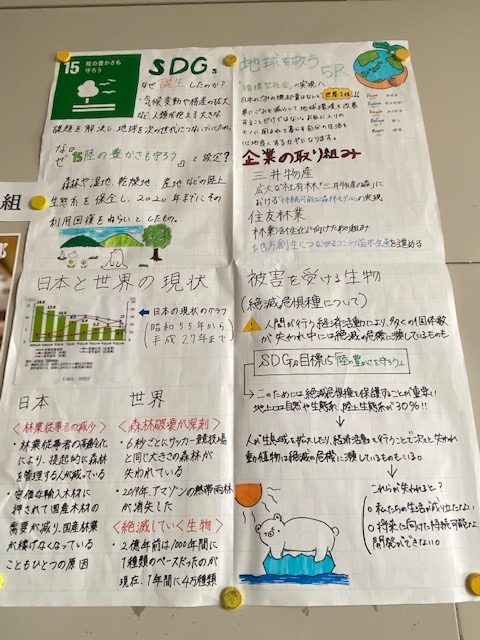 15 陸の豊かさも
守ろう
SDGs
なぜ誕生したのか?
・気候変動や格差の拡大
など、人類が抱える大きな
課題を解決し、地球を次の世代につないでいくため。
なぜ「15陸の豊かさも守ろう」と設定?
森林や湿地、乾燥地、産地などの陸上
生態系を保全し、2020年までにその
利用回復をねらいとしたもの。
地球を救う
5R
「循環型社会」の実現へ
日本のごみの焼却量はなんと世界1位!!
単にごみを減らして地球環境を改善
することだけではない。お気に入りの
モノに囲まれて暮らす自分の生活を
心地良くするカギになります。
企業の取り組み
三井物産
広大な社有林「三井物産の森」に
おける「持続可能な森林モデル」の実現
住友林業
林業活性化に向けたお取り組み
地方創生につながるコンテナ苗木生産を進める
組
日本と世界の現状
← 日本の現状のグラフ
(昭和55年から
平成27年まで)
日本
<林業従事者の減少>
・林業従事者の高齢化
により、提起的に森林
を管理する人が減っている
・安価な輸入木材に
押されて国産木材の
需要が減り、国産林業
が稼げなくなっている
こともひとつの原因
世界
<森林破壊が深刻>
・5秒ごとにサッカー競技場
と同じ大きさの森林が
失われている
・2019年、アマゾンの熱帯雨林
が消失した
<絶滅していく生物>
・2億年前は1000年間に
1種類のペースだったのが
現在、1年間に4万種類
被害を受ける生物
(絶滅危惧種について)
人間が行う経済活動により、多くの個体数
が失われ中には絶滅の危機に瀕しているものも
SDGs目標15「陸の豊かさを守ろう」
→このためには絶滅危惧種を保護することが重要!!
地上には自然や生態系、陸上生態系が30%!!
人が生息域を拡大したり、経済活動を行うことで次々と失われ
動植物は絶滅の危機に瀕しているものもいる。
これらが失われると?
○私たちの生活が成り立たない
○将来に向けた持続可能な
開発ができない。